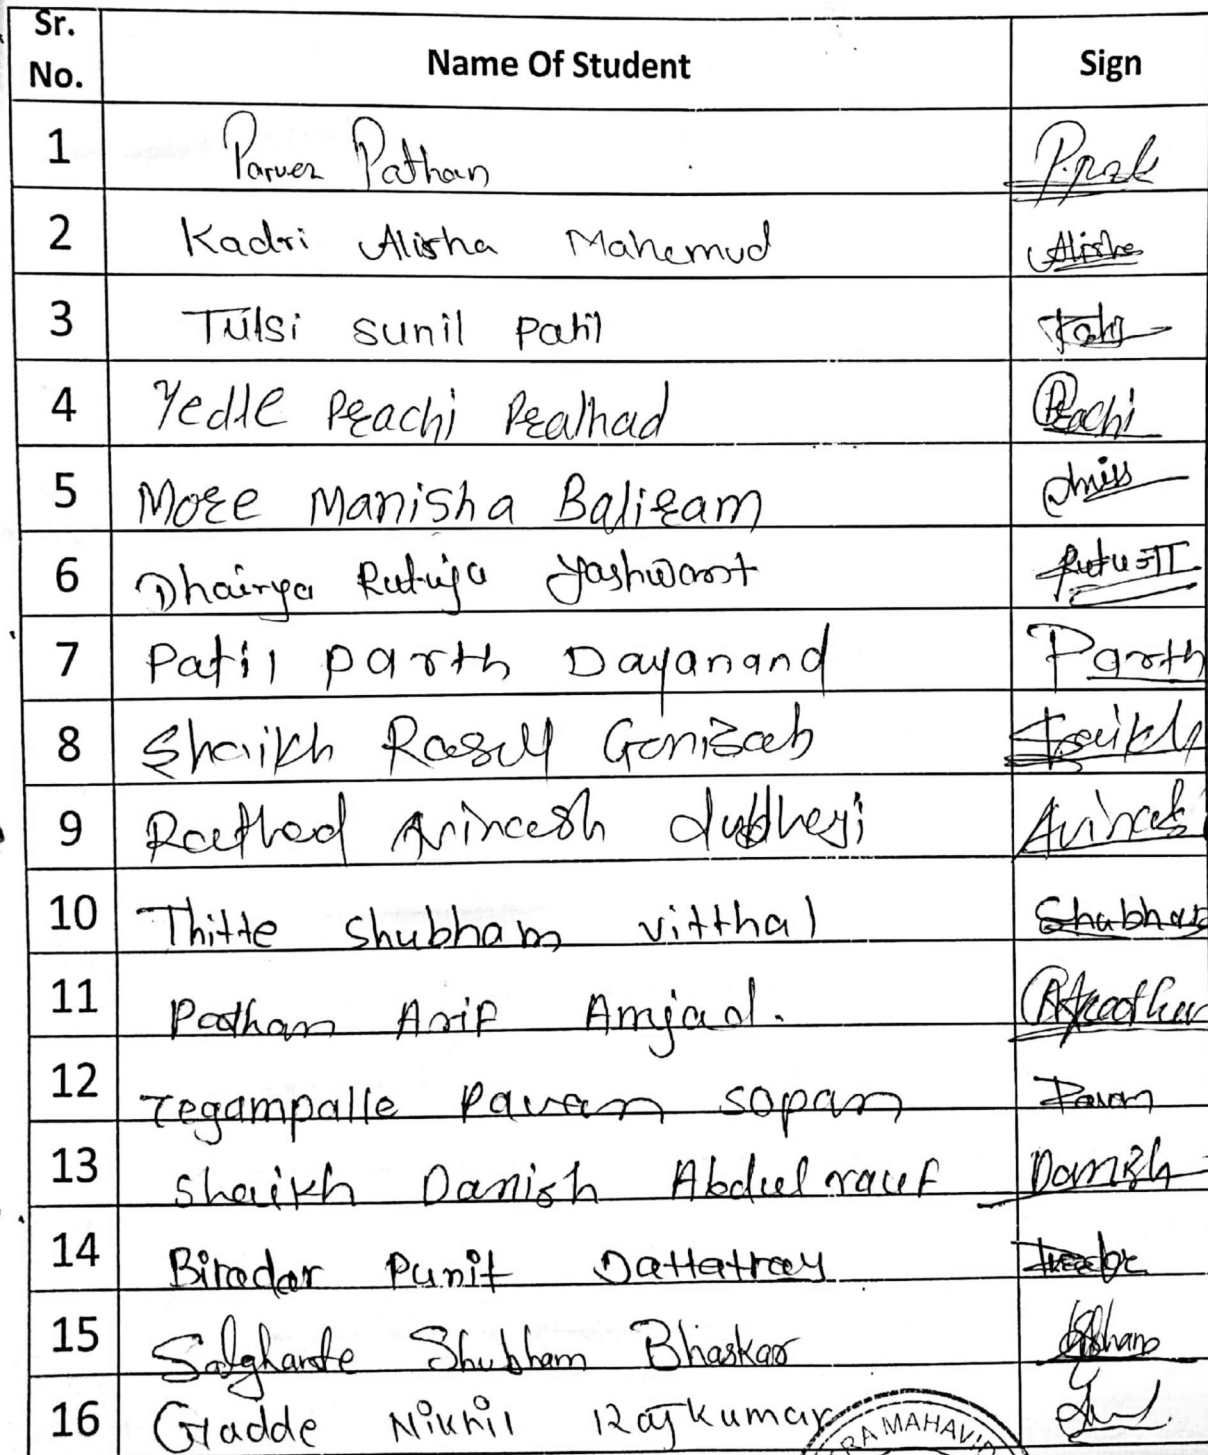 Sr. No. Name Of Student Sign
1 Parvez Pathan
2 Kadri Alisha Mahemud Alisha
3 Tulsi sunil Patil
4 Yedle Prachi Pralhad Prachi
5 More Manisha Baliram
6 Dhairya Rutuja Yashwant
7 Patil Parth Dayanand Parth
8 Shaikh Rasul Ganisab Shaikh
9 Rathod Avinash Avinash
10 Thitte Shubham vitthal Shubham
11 Pathan Arif Amjad.
12 Tegampalle Pavan sopan Pavan
13 Shaikh Danish Abdul rauf Danish
14 Biradar Punit Dattatray
15 Shubham Bhaskar
16 Gadde Nikhil Rajkumar
RA MAHAVID